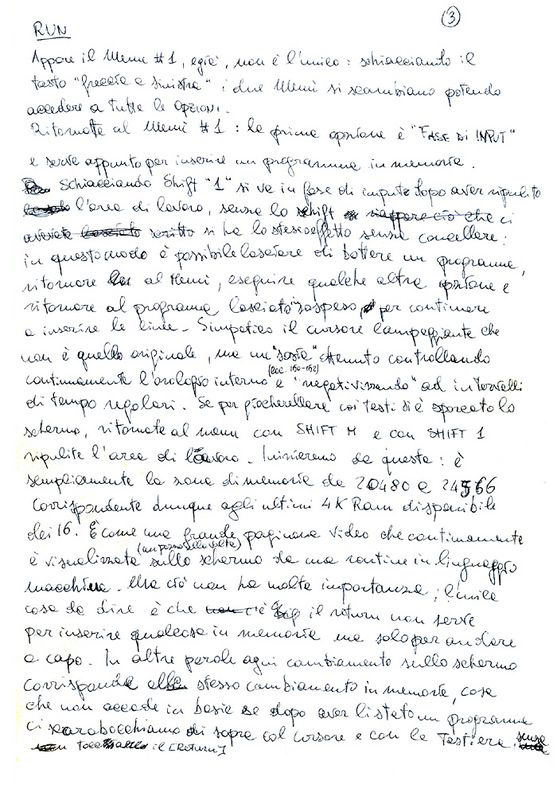 3
RUN
Appare il Menu #1, egià, non è l'unico: schiacciando il
tasto "freccia a sinistra" i due Menù si scambiano potendo
accedere a tutte le opzioni.
Ritornate al Menù #1: la prima opzione è "FASE DI INPUT"
e serve appunto per inserire un programma in memoria.
Schiacciando Shift "1" si va in fase di input dopo aver ripulito
l'area di lavoro, senza lo shift ci
si ha lo stesso effetto senza cancellare:
in questo modo è possibile lasciare di battere un programma,
ritornare al Menù, eseguire qualche altra opzione e
ritornare al programma lasciato "sospeso" per continuare
a inserire le linee. Simpatico il cursore lampeggiante che
non è quello originale, ma un "sosia" ottenuto controllando
continuamente l'orologio interno (loc. 160-162) e "negativizzando" ad intervalli
di tempo regolari. Se per giocherellare coi tasti si è sporcato lo
schermo, ritornate al menu con SHIFT M e con SHIFT 1
ripulite l'area di lavoro. Inizieremo da questa: è
semplicemente la zona di memoria da 20480 a 24566
corrispondente dunque agli ultimi 4K Ram disponibili
dei 16. È come una grande paginona video che continuamente
è visualizzata (un pezzo alla volta) sullo schermo da una routine in linguaggio
macchina. Ma ciò non ha molta importanza; l'unica
cosa da dire è che il return non serve
per inserire qualcosa in memoria ma solo per andare
a capo. In altre parole ogni cambiamento sullo schermo
corrisponde allo stesso cambiamento in memoria, cosa
che non accade in basic se dopo aver listato un programma
ci scarabocchiamo di sopra col cursore e con la tastiera, senza
il [Return]